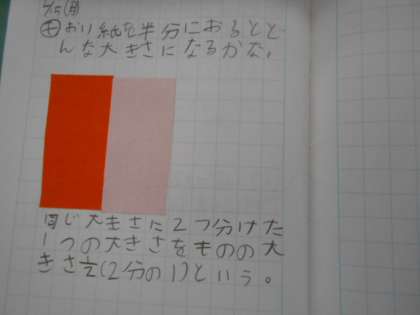 (月)
㋖おり紙を半分におるとど
んな大きさになるかな。
同じ大きさに2つ分けた
1つの大きさをもとの大
きさ½(2分の1)という。